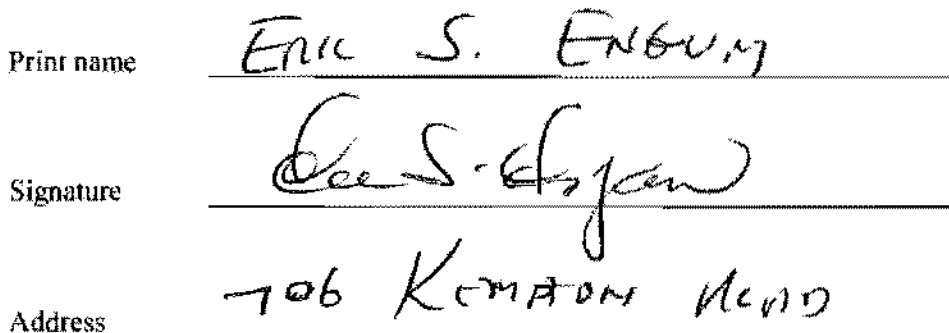 Print name ERIC S. ENGUM
Signature Eric S. Engum
Address 706 KEMPTON ROAD